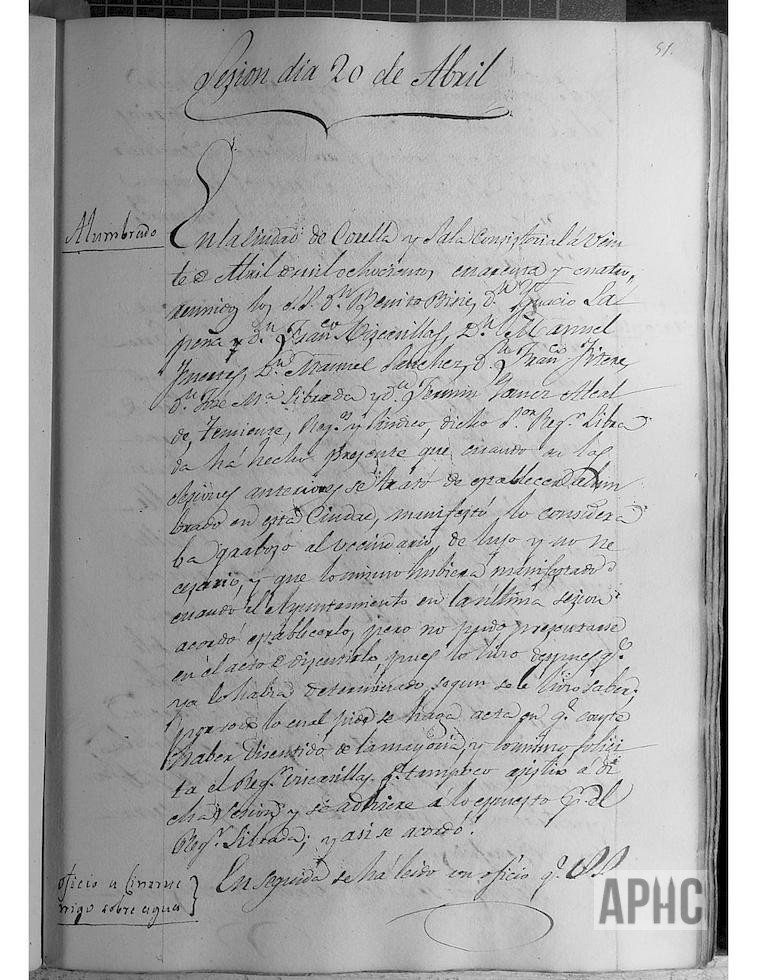 51.
Sesion dia 20 de Abril
Alumbrado
En la Ciudad de Corella y Sala Consistorial á vein
te de Abril de mil ochocientos, cuarenta y cuatro,
reunidos los S.S. Dn. Benito dn. Ignacio Sal
y dn. Franco. Viscarillas, Dn. Manuel
Fuertes, Dn. Manuel Sanchez, Dn. Franco.
dn. José Ma. Librada y dn. Fermin Alcal
de, Teniente, Regs. y Sindico, dicho Sor. Regr. Libra
da há hecho presente que cuando en las
sesiones anteriores se trató de establecer alum
brado en esta Ciudad, manifestó lo considera
ba grabozo al vecindario, de lujo y no ne
cesario, y que lo mismo hubiera manifestado
cuando el Ayuntamiento en la ultima sesion
acordó establecerlo, pero no pudo presentarse
en el acto de discutirlo, pues lo hizo despues qe.
ya lo habia determinado segun se le hizo saber;
por todo lo cual pide se haga acta en qe. conste
haber disentido de la mayoria, y lo mismo solici
ta el Regr. Viscarillas qe. tampoco asistio á di
cha sesion y se adhiere á lo espuesto pr. el
Regr. Librada; y asi se acordó.
oficio a Cintrue
nigo sobre aguas
En seguida se há leido un oficio qe. SS.
APHC